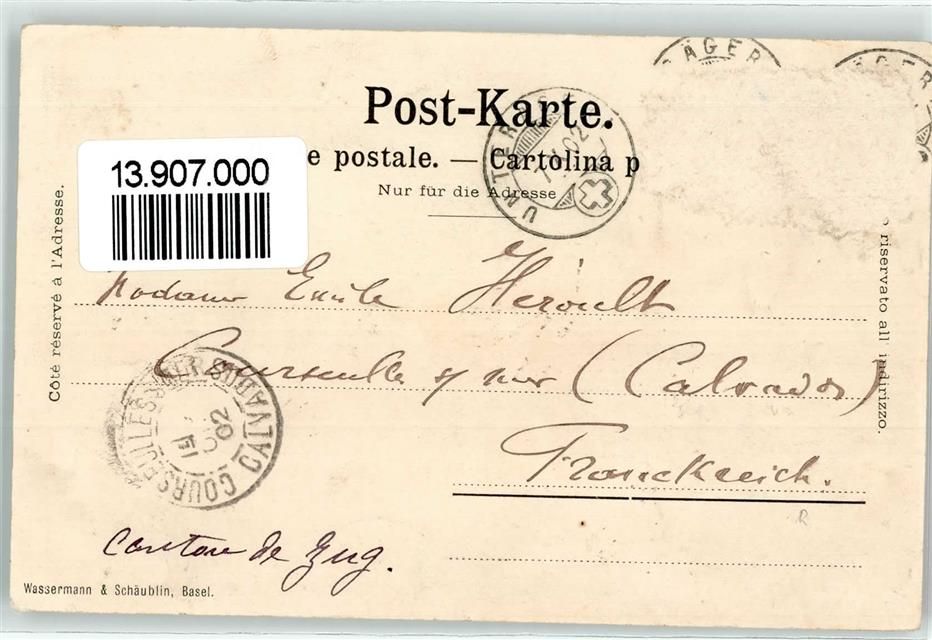 Post-Karte.
e postale. — Cartolina p
Nur für die Adresse
13.907.000
Côté réservé à l'Adresse.
o riservato all' indirizzo.
ÄGER
ÄGER
UNTER
02
Madame Emile Héroult
Courseulles s/ mer (Calvados)
Franckreich.
COURSEULLES S MER CALVADOS
02
Canton de Zug.
Wassermann & Schäublin, Basel.